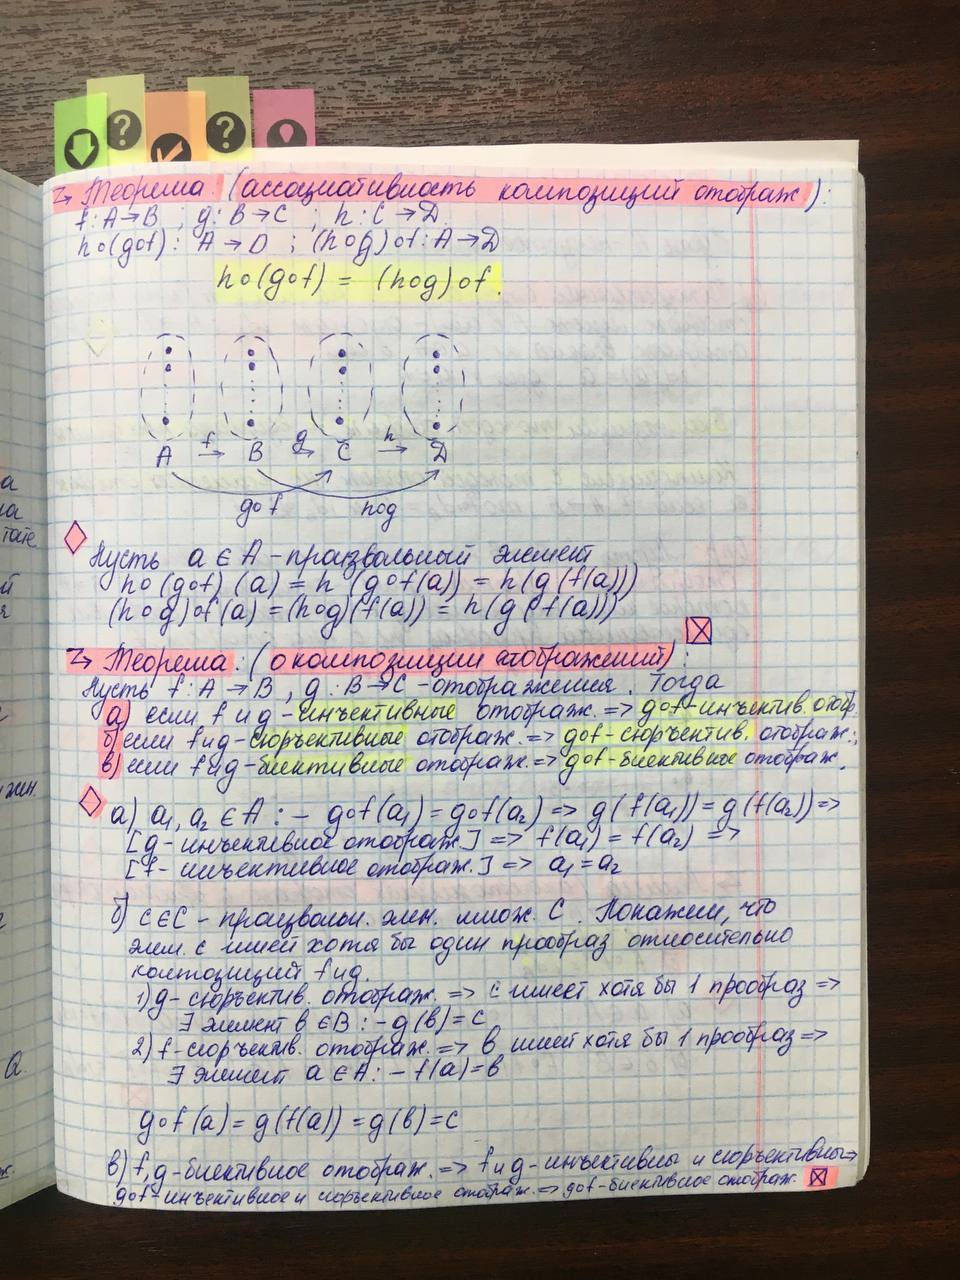 Теорема (ассоциативность композиций отображ):
f: A → B ; g: B → C ; h: C → D
h∘(g∘f): A → D ; (h∘g)∘f: A → D
h∘(g∘f) = (h∘g)∘f.
f g h
A → B → C → D
g∘f h∘g
Пусть a ∈ A - произвольный элемент
h∘(g∘f)(a) = h(g∘f(a)) = h(g(f(a)))
(h∘g)∘f(a) = (h∘g)(f(a)) = h(g(f(a)))
Теорема: (о композиции отображений):
Пусть f: A → B, g: B → C - отображения. Тогда
а) если f и g - инъективные отображ. => g∘f - инъектив. отобр.
б) если f и g - сюръективные отображ. => g∘f - сюръектив. отображ.;
в) если f и g - биективные отображ. => g∘f - биективные отображ.
а) a₁, a₂ ∈ A : - g∘f(a₁) = g∘f(a₂) => g(f(a₁)) = g(f(a₂)) =>
[g - инъективное отображ.] => f(a₁) = f(a₂) =>
[f - инъективное отображ.] => a₁ = a₂
б) c ∈ C - произвольн. элем. множ. C. Покажем, что
элем. c имеет хотя бы один прообраз относительно
композиций f и g.
1) g - сюръектив. отображ. => c имеет хотя бы 1 прообраз =>
∃ элемент b ∈ B : - g(b) = c
2) f - сюръектив. отображ. => b имеет хотя бы 1 прообраз =>
∃ элемент a ∈ A : - f(a) = b
g∘f(a) = g(f(a)) = g(b) = c
в) f, g - биективное отображ. => f и g - инъективны и сюръективны =>
g∘f - инъективное и сюръективное отображ. => g∘f - биективное отображ.